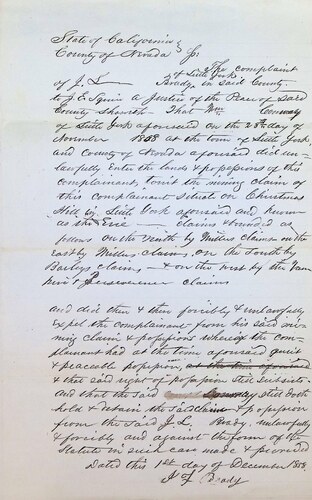 State of California }
County of Nevada } ss.
The complaint
of J. L. Brady of Little York in said County
to J. E. Squire a Justice of the Peace of said
County sheweth - That Wm Conway
of Little York aforesaid on the 28th day of
November 1858 at the town of Little York
and County of Nevada aforesaid did un-
lawfully Enter the lands & possessions of this
complainant, towit the mining claim of
this complainant situat on Christmas
Hill by Little York aforesaid and known
as the Erie claims & bounded as
follows on the North by Millers claims on the
East by Millers claims, on the South by
Baileys claims - & on the west by the
& Perseverance claims
and did then & there forcibly & unlawfully
Expel the complainant from his said mi-
ning claim & possessions whereof the com-
plainant had at the time aforesaid quiet
& peaceable possession, as the time aforesaid
& that said right of possession still subsists.
and that the said Conway still doth
hold & detain the said claim & possession
from the said J. L. Brady. unlawfully
& forcibly and against the form of the
Statute in such case made & provided
Dated this 1st day of December 1858.
J L Brady